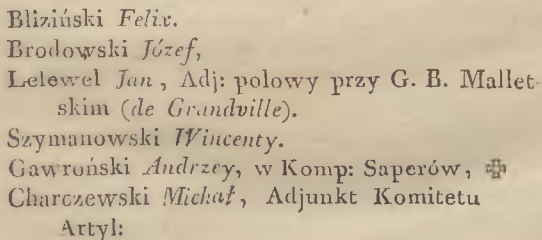 Bliziński Felix.
Brodowski Józef,
Lelewel Jan, Adj: polowy przy G. B. Mallet-
skim (de Grandville).
Szymanowski Wincenty.
Gawroński Andrzey, w Komp: Saperów, ✠
Charczewski Michał, Adjunkt Komitetu
Artyl: